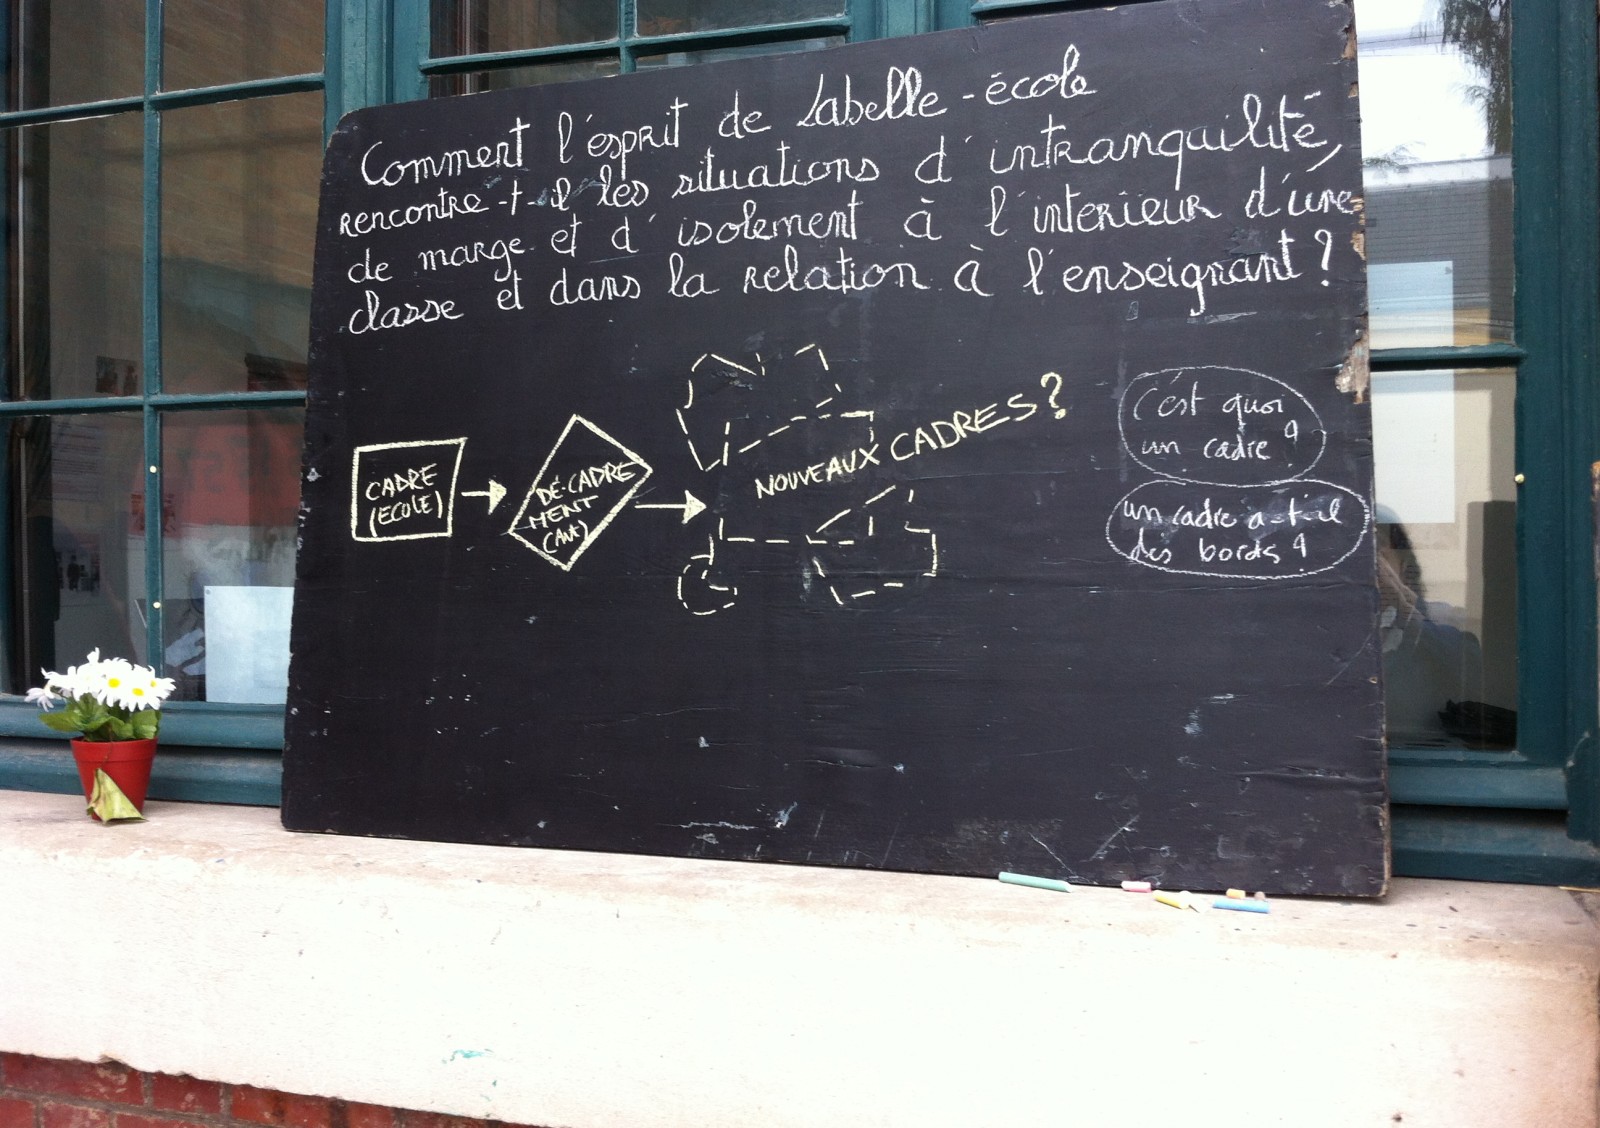 Comment l'esprit de Labelle-école
rencontre-t-il les situations d'intranquilité,
de marge et d'isolement à l'interieur d'une
classe et dans la relation à l'enseignant?
CADRE
(ECOLE)
DÉ-CADRE
MENT
NOUVEAUX CADRES?
C'est quoi
un cadre?
un cadre a-t-il
des bords?